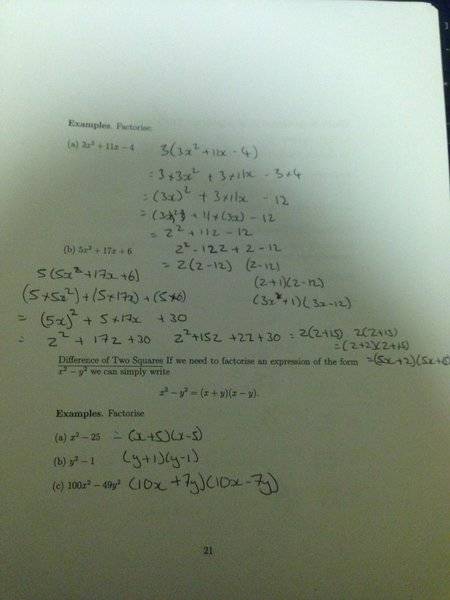 Examples. Factorise
(a) 3x² + 11x − 4
3(3x² + 11x − 4)
= 3×3x² + 3×11x − 3×4
= (3x)² + 3×11x − 12
= (3x)² + 11×(3x) − 12
= z² + 11z − 12
z² − 12z + z − 12
= z(z−12) (z−12)
(z+1)(z−12)
(3x+1)(3x−12)
(b) 5x² + 17x + 6
5(5x² + 17x + 6)
(5×5x²) + (5×17x) + (5×6)
= (5x)² + 5×17x + 30
= z² + 17z + 30 z² + 15z + 2z + 30 = z(z+15) 2(z+15)
= (z+2)(z+15)
= (5x+2)(5x+15)
Difference of Two Squares If we need to factorise an expression of the form
x² − y² we can simply write
x² − y² = (x + y)(x − y).
Examples. Factorise
(a) x² − 25 = (x+5)(x−5)
(b) y² − 1 (y+1)(y−1)
(c) 100x² − 49y² (10x + 7y)(10x − 7y)
21